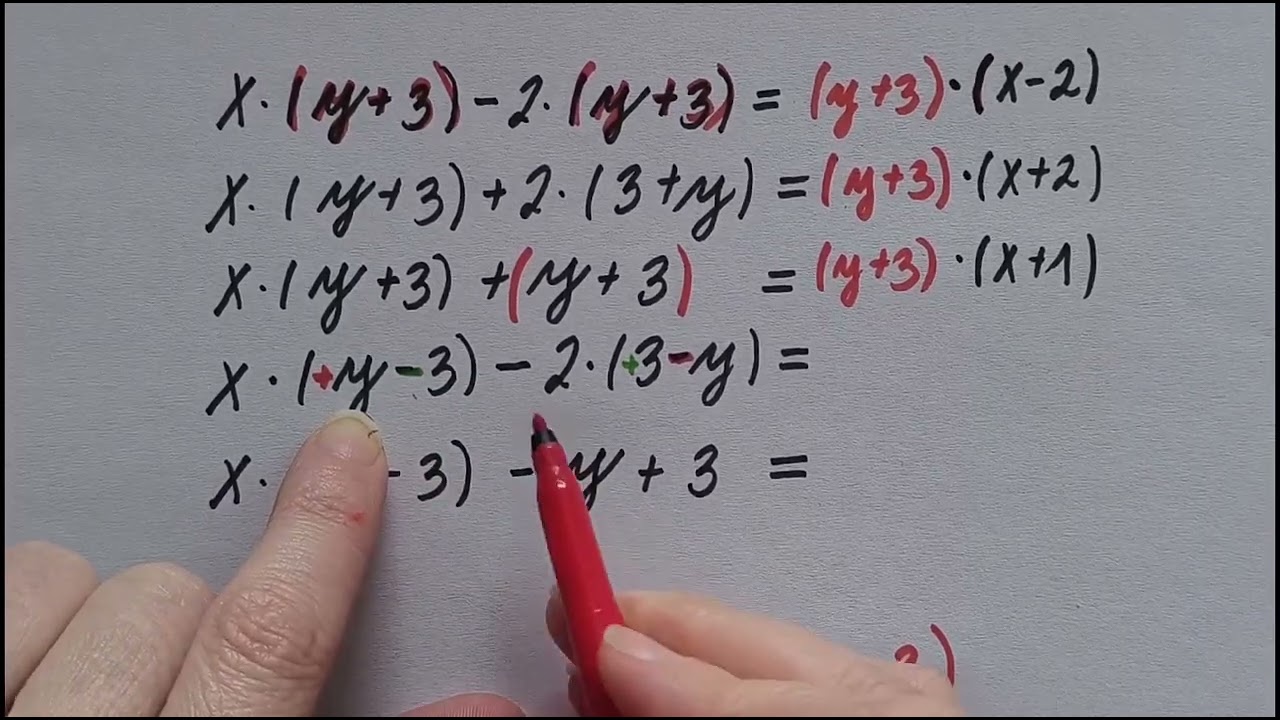 x·(y+3)-2·(y+3) = (y+3)·(x-2)
x·(y+3)+2·(3+y) = (y+3)·(x+2)
x·(y+3) +(y+3) = (y+3)·(x+1)
x·(+y-3)-2·(+3-y) =
x· -3) -y+3 =
)